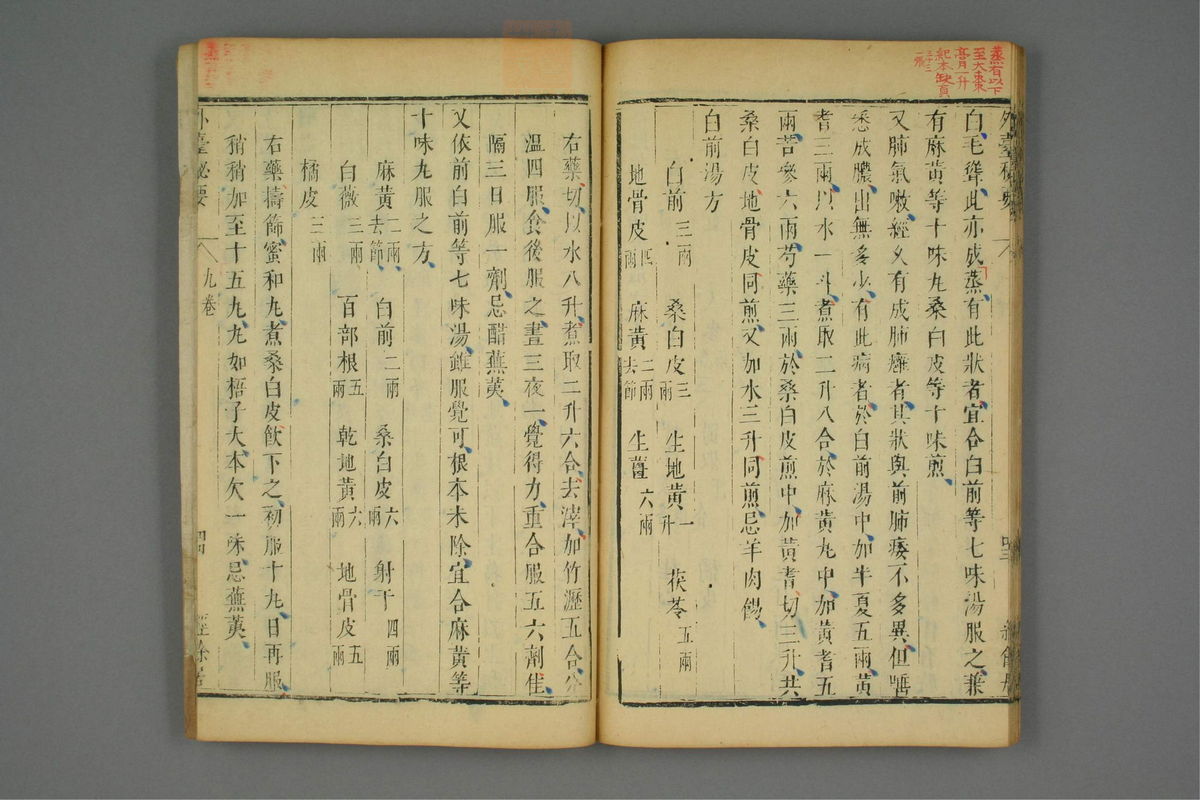 蒸有以下
至大棗
膏一升
紀本缺頁
白毛聳此亦成蒸有此狀者宜合白前等七味湯服之兼
有麻黃等十味丸桑白皮等十味煎
又肺氣嗽經久有成肺癰者其狀與前肺痿不多異但唾
悉成膿出無多少有此病者於白前湯中加半夏五兩黃
耆三兩以水一斗煮取二升八合於麻黃丸中加黃耆五
兩苦參六兩芍藥三兩於桑白皮煎中加黃耆切三升共
桑白皮地骨皮同煎又加水三升同煎忌羊肉餳
白前湯方
白前三兩 桑白皮三兩 生地黃一升 茯苓五兩
地骨皮四兩 麻黃二兩去節 生薑六兩
右藥切以水八升煮取二升六合去滓加竹瀝五合分
溫四服食後服之晝三夜一覺得力重合服五六劑佳
隔三日服一劑忌醋蕪荑
又依前白前等七味湯雖服覺可根本未除宜合麻黃等
十味丸服之方
麻黃二兩去節 白前二兩 桑白皮六兩 射干四兩
白薇三兩 百部根五兩 乾地黃六兩 地骨皮五兩
橘皮三兩
右藥擣篩蜜和丸煮桑白皮飲下之初服十丸日再服
稍稍加至十五丸丸如梧子大本欠一味忌蕪荑
外臺秘要 九卷 四四 經餘居